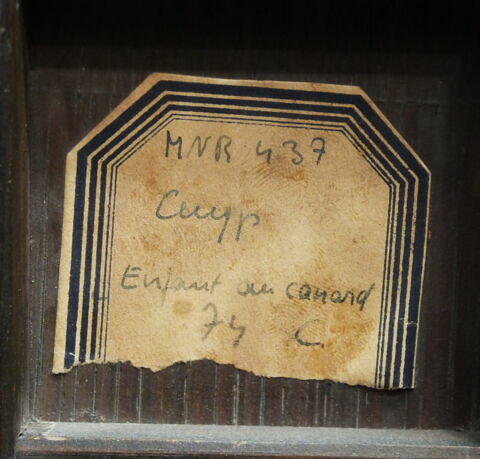 MNR 437
Cuyp
Enfant au canard
74 C